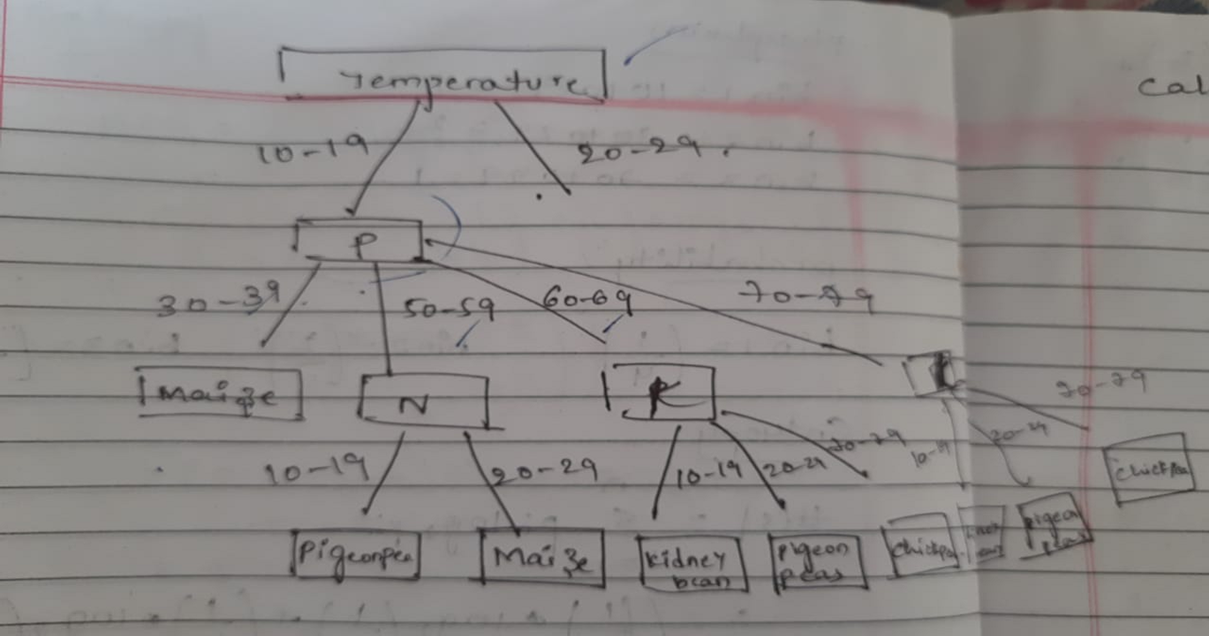 Temperature
Cal
10-19 20-29
P
30-39 50-59 60-69 70-79
Maize N K K 70-79
10-19 20-29 10-19 20-29 70-79 10-19 20-29
Chickpea
Pigeonpea Maize kidney bean pigeon peas chickpea pigeon peas